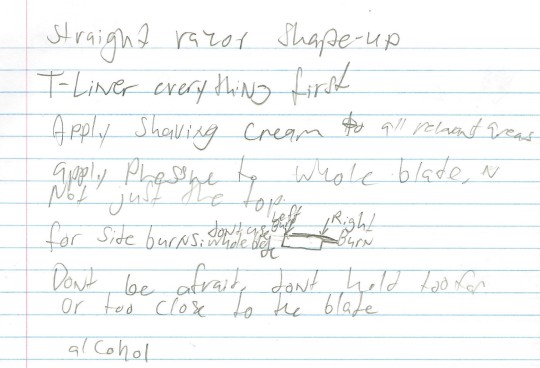 straight razor shape-up
T-Liner everything first
Apply shaving cream to all relevant areas
apply pressure to whole blade, N
Not just the top
for side burns: dont use whole
Left Right
Burn
Dont be afraid, dont hold too far
or too close to the blade
alcohol